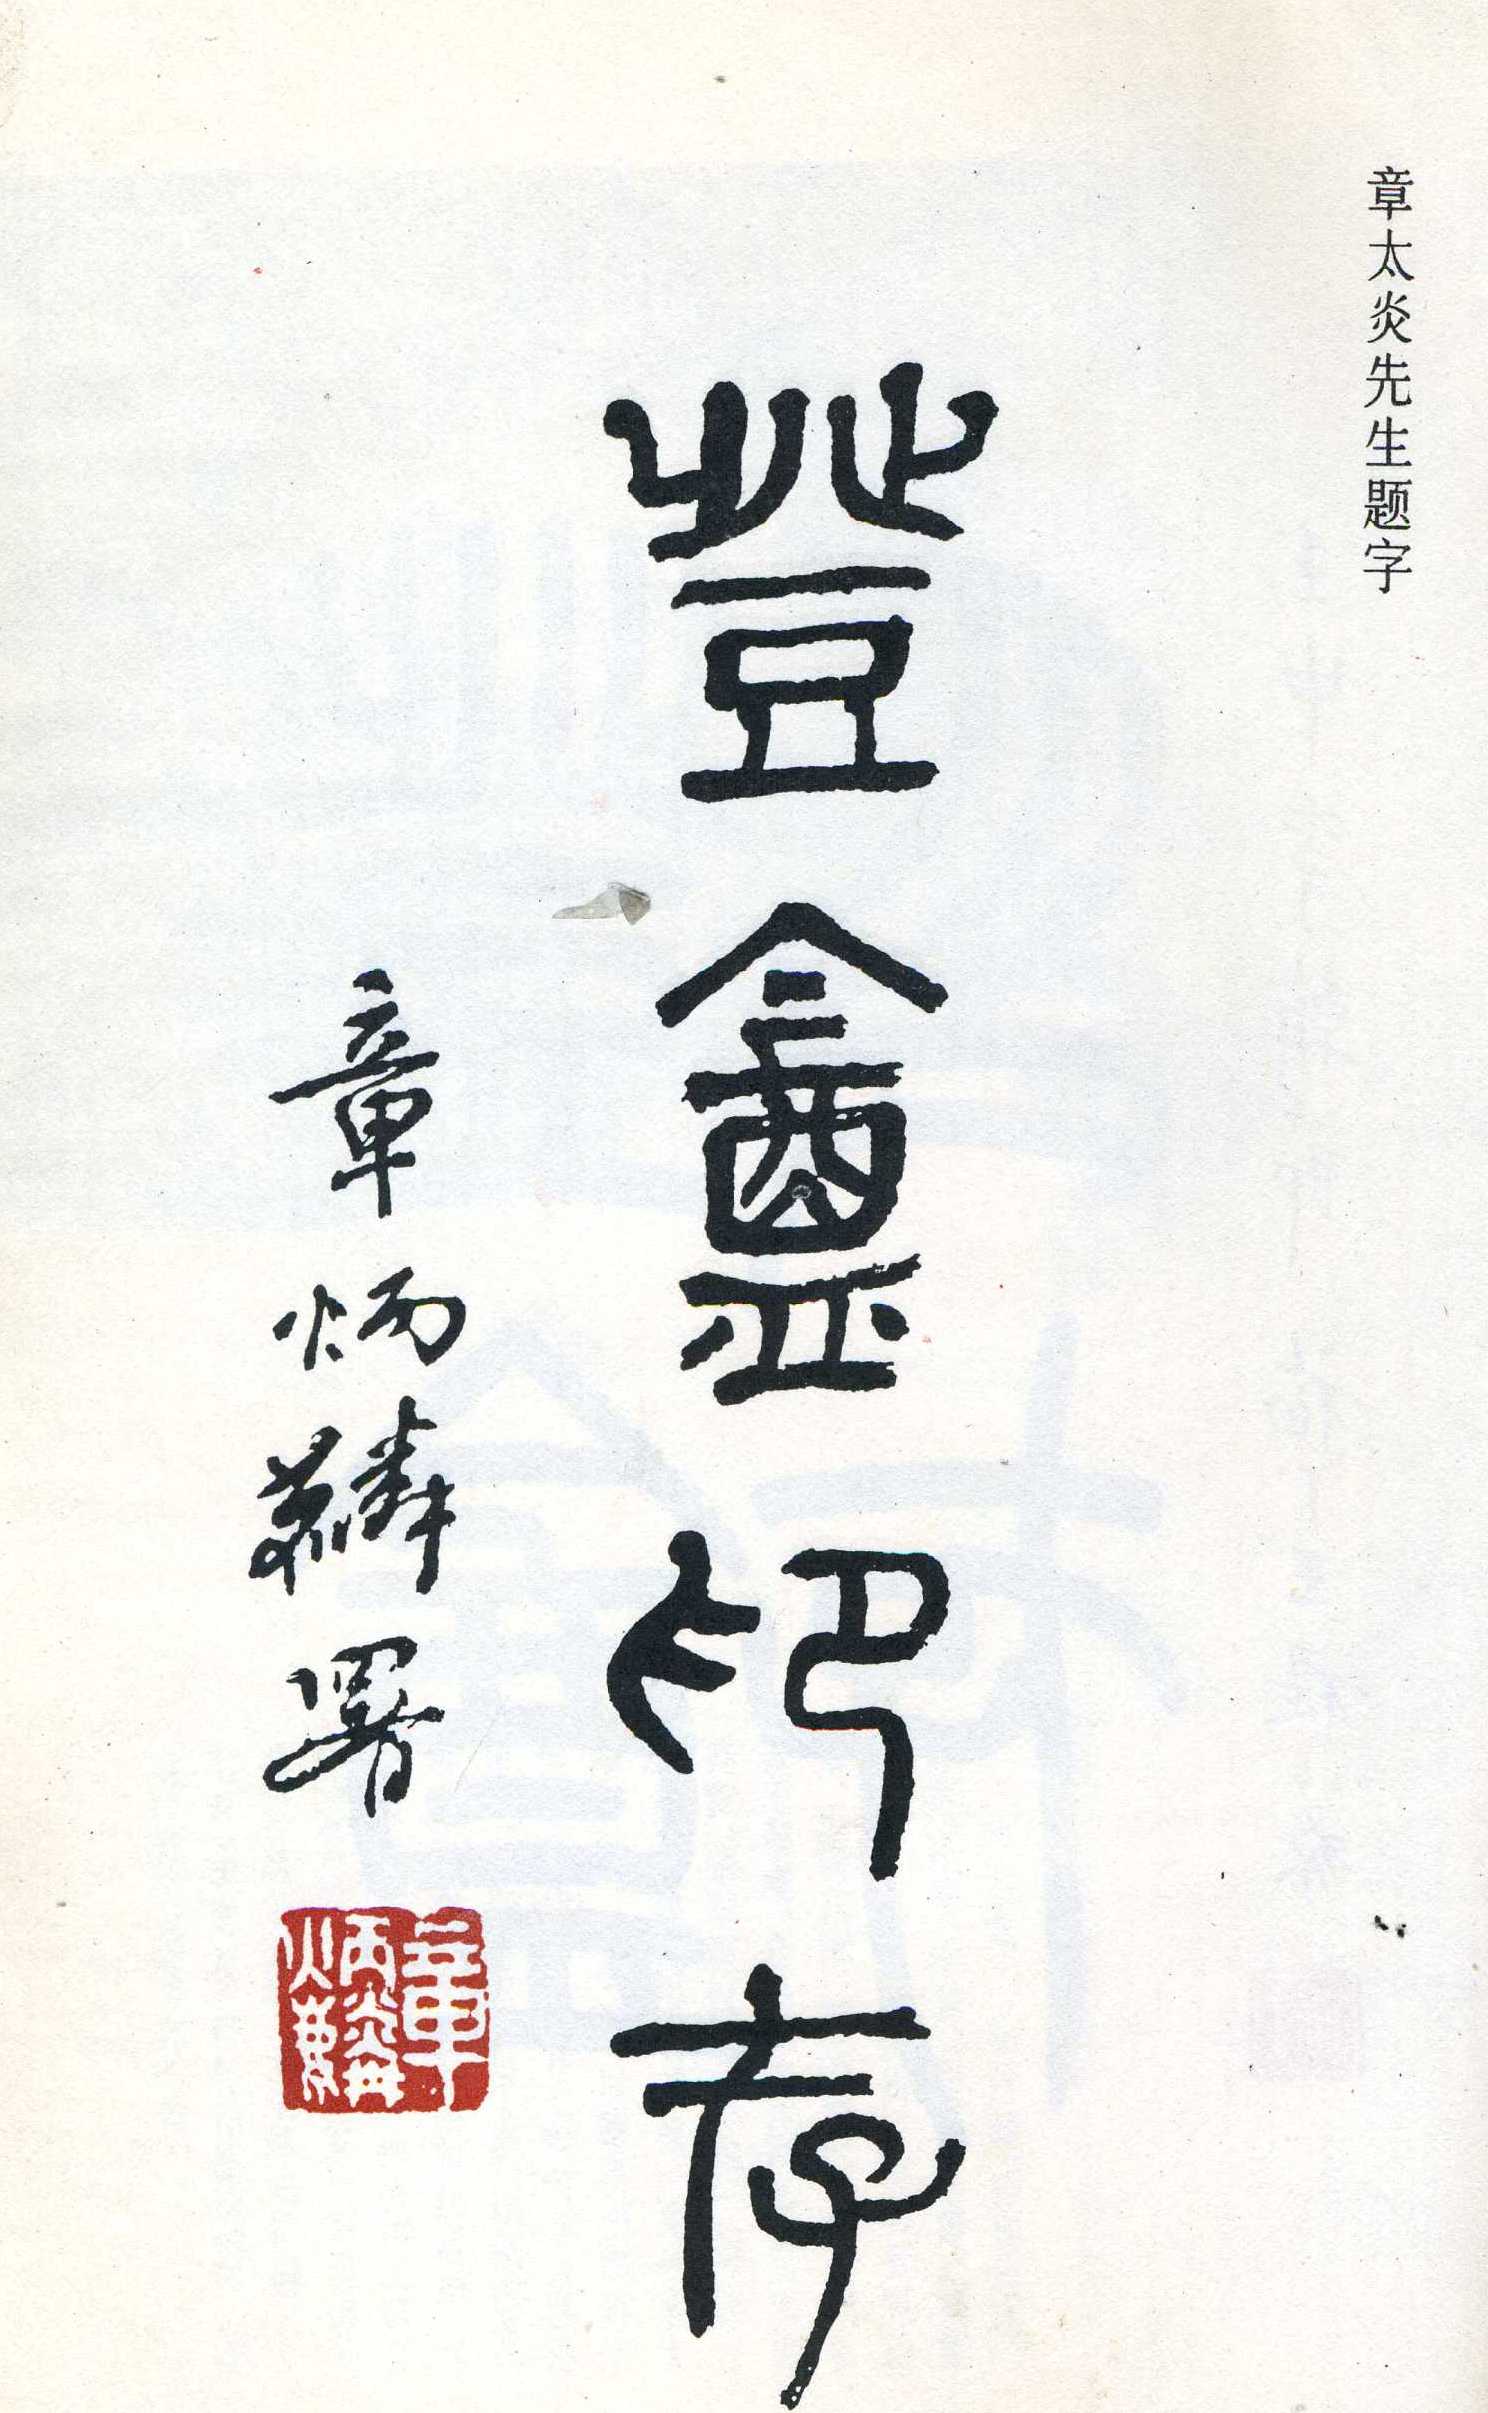 章太炎先生题字
登盦印存
章炳麟署
章炳麟